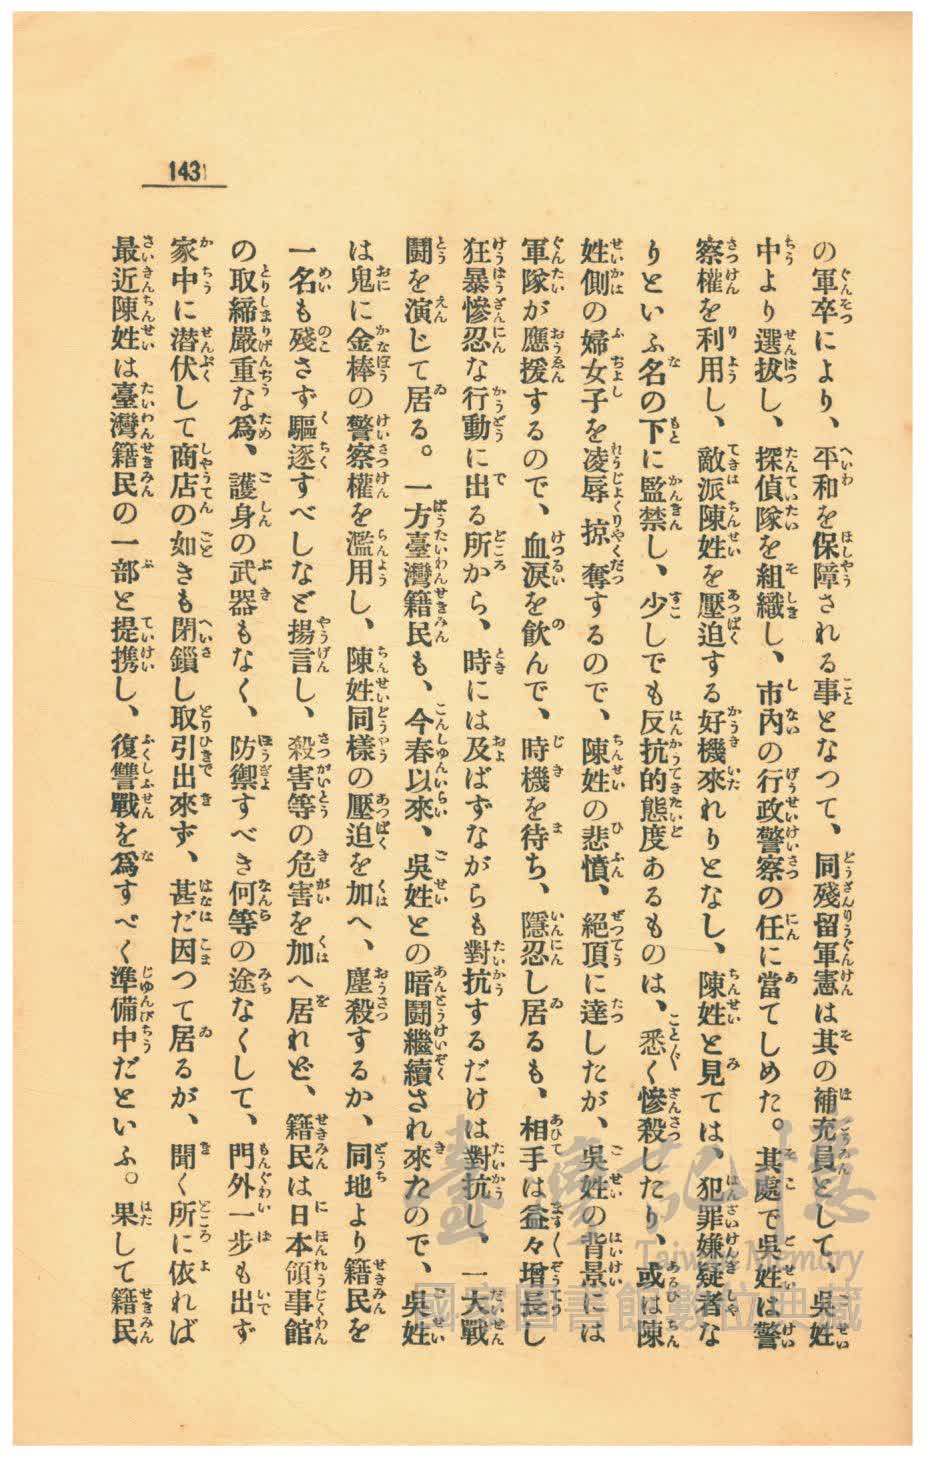 143
の軍卒により、平和を保障される事となつて、同殘留軍憲は其の補充員として、吳姓
中より選拔し、探偵隊を組織し、市內の行政警察の任に當てしめた。其處で吳姓は警
察權を利用し、敵派陳姓を壓迫する好機來れりとなし、陳姓と見ては、犯罪嫌疑者な
りといふ名の下に監禁し、少しでも反抗的態度あるものは、悉く慘殺したり、或は陳
姓側の婦女子を凌辱掠奪するので、陳姓の悲憤、絕頂に達したが、吳姓の背景には
軍隊が應援するので、血淚を飮んで、時機を待ち、隱忍し居るも、相手は益々增長し
狂暴慘忍な行動に出る所から、時には及ばずながらも對抗するだけは對抗し、一大戰
鬪を演じて居る。一方臺灣籍民も、今春以來、吳姓との暗鬪繼續され來たので、吳姓
は鬼に金棒の警察權を濫用し、陳姓同樣の壓迫を加へ、塵殺するか、同地より籍民を
一名も殘さず驅逐すべしなど揚言し、殺害等の危害を加へ居れど、籍民は日本領事館
の取締嚴重な爲、護身の武器もなく、防禦すべき何等の途なくして、門外一步も出ず
家中に潜伏して商店の如きも閉鎖し取引出來ず、甚だ因つて居るが、聞く所に依れば
最近陳姓は臺灣籍民の一部と提携し、復讐戰を爲すべく準備中だといふ。果して籍民
臺灣記憶
Taiwan Memory
國家圖書館數位典藏